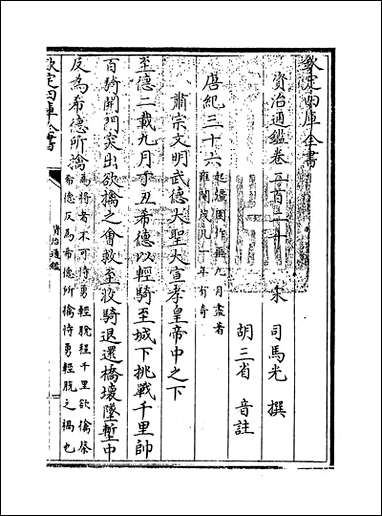 欽定四庫全書
資治通鑑卷二百二十
宋 司馬光 撰
胡三省 音註
唐紀三十六起彊圉作噩九月盡著雍閹茂凡一年有奇
肅宗文明武德大聖大宣孝皇帝中之下
至德二載九月丁丑希德以輕騎至城下挑戰千里帥
百騎開門突出欲擒之會救至收騎退還橋壞墜塹中
反為希德所擒為將者不可恃勇輕脫程千里欲擒蔡希德反為希德所擒恃勇輕脫之禍也
欽定四庫全書
資治通鑑